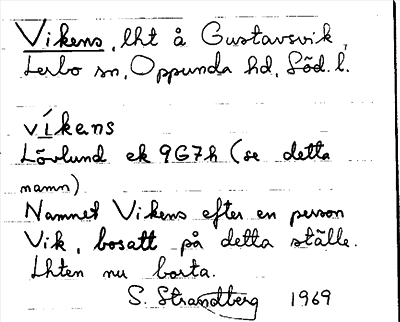 Vikens, lht å Gustavsvik,
Lerbo sn, Oppunda hd, Söd. l.
víkens
Lövlund ek 9G7h (se detta
namn)
Namnet Vikens efter en person
Vik, bosatt på detta ställe.
Lhten nu borta.
S. Strandberg 1969